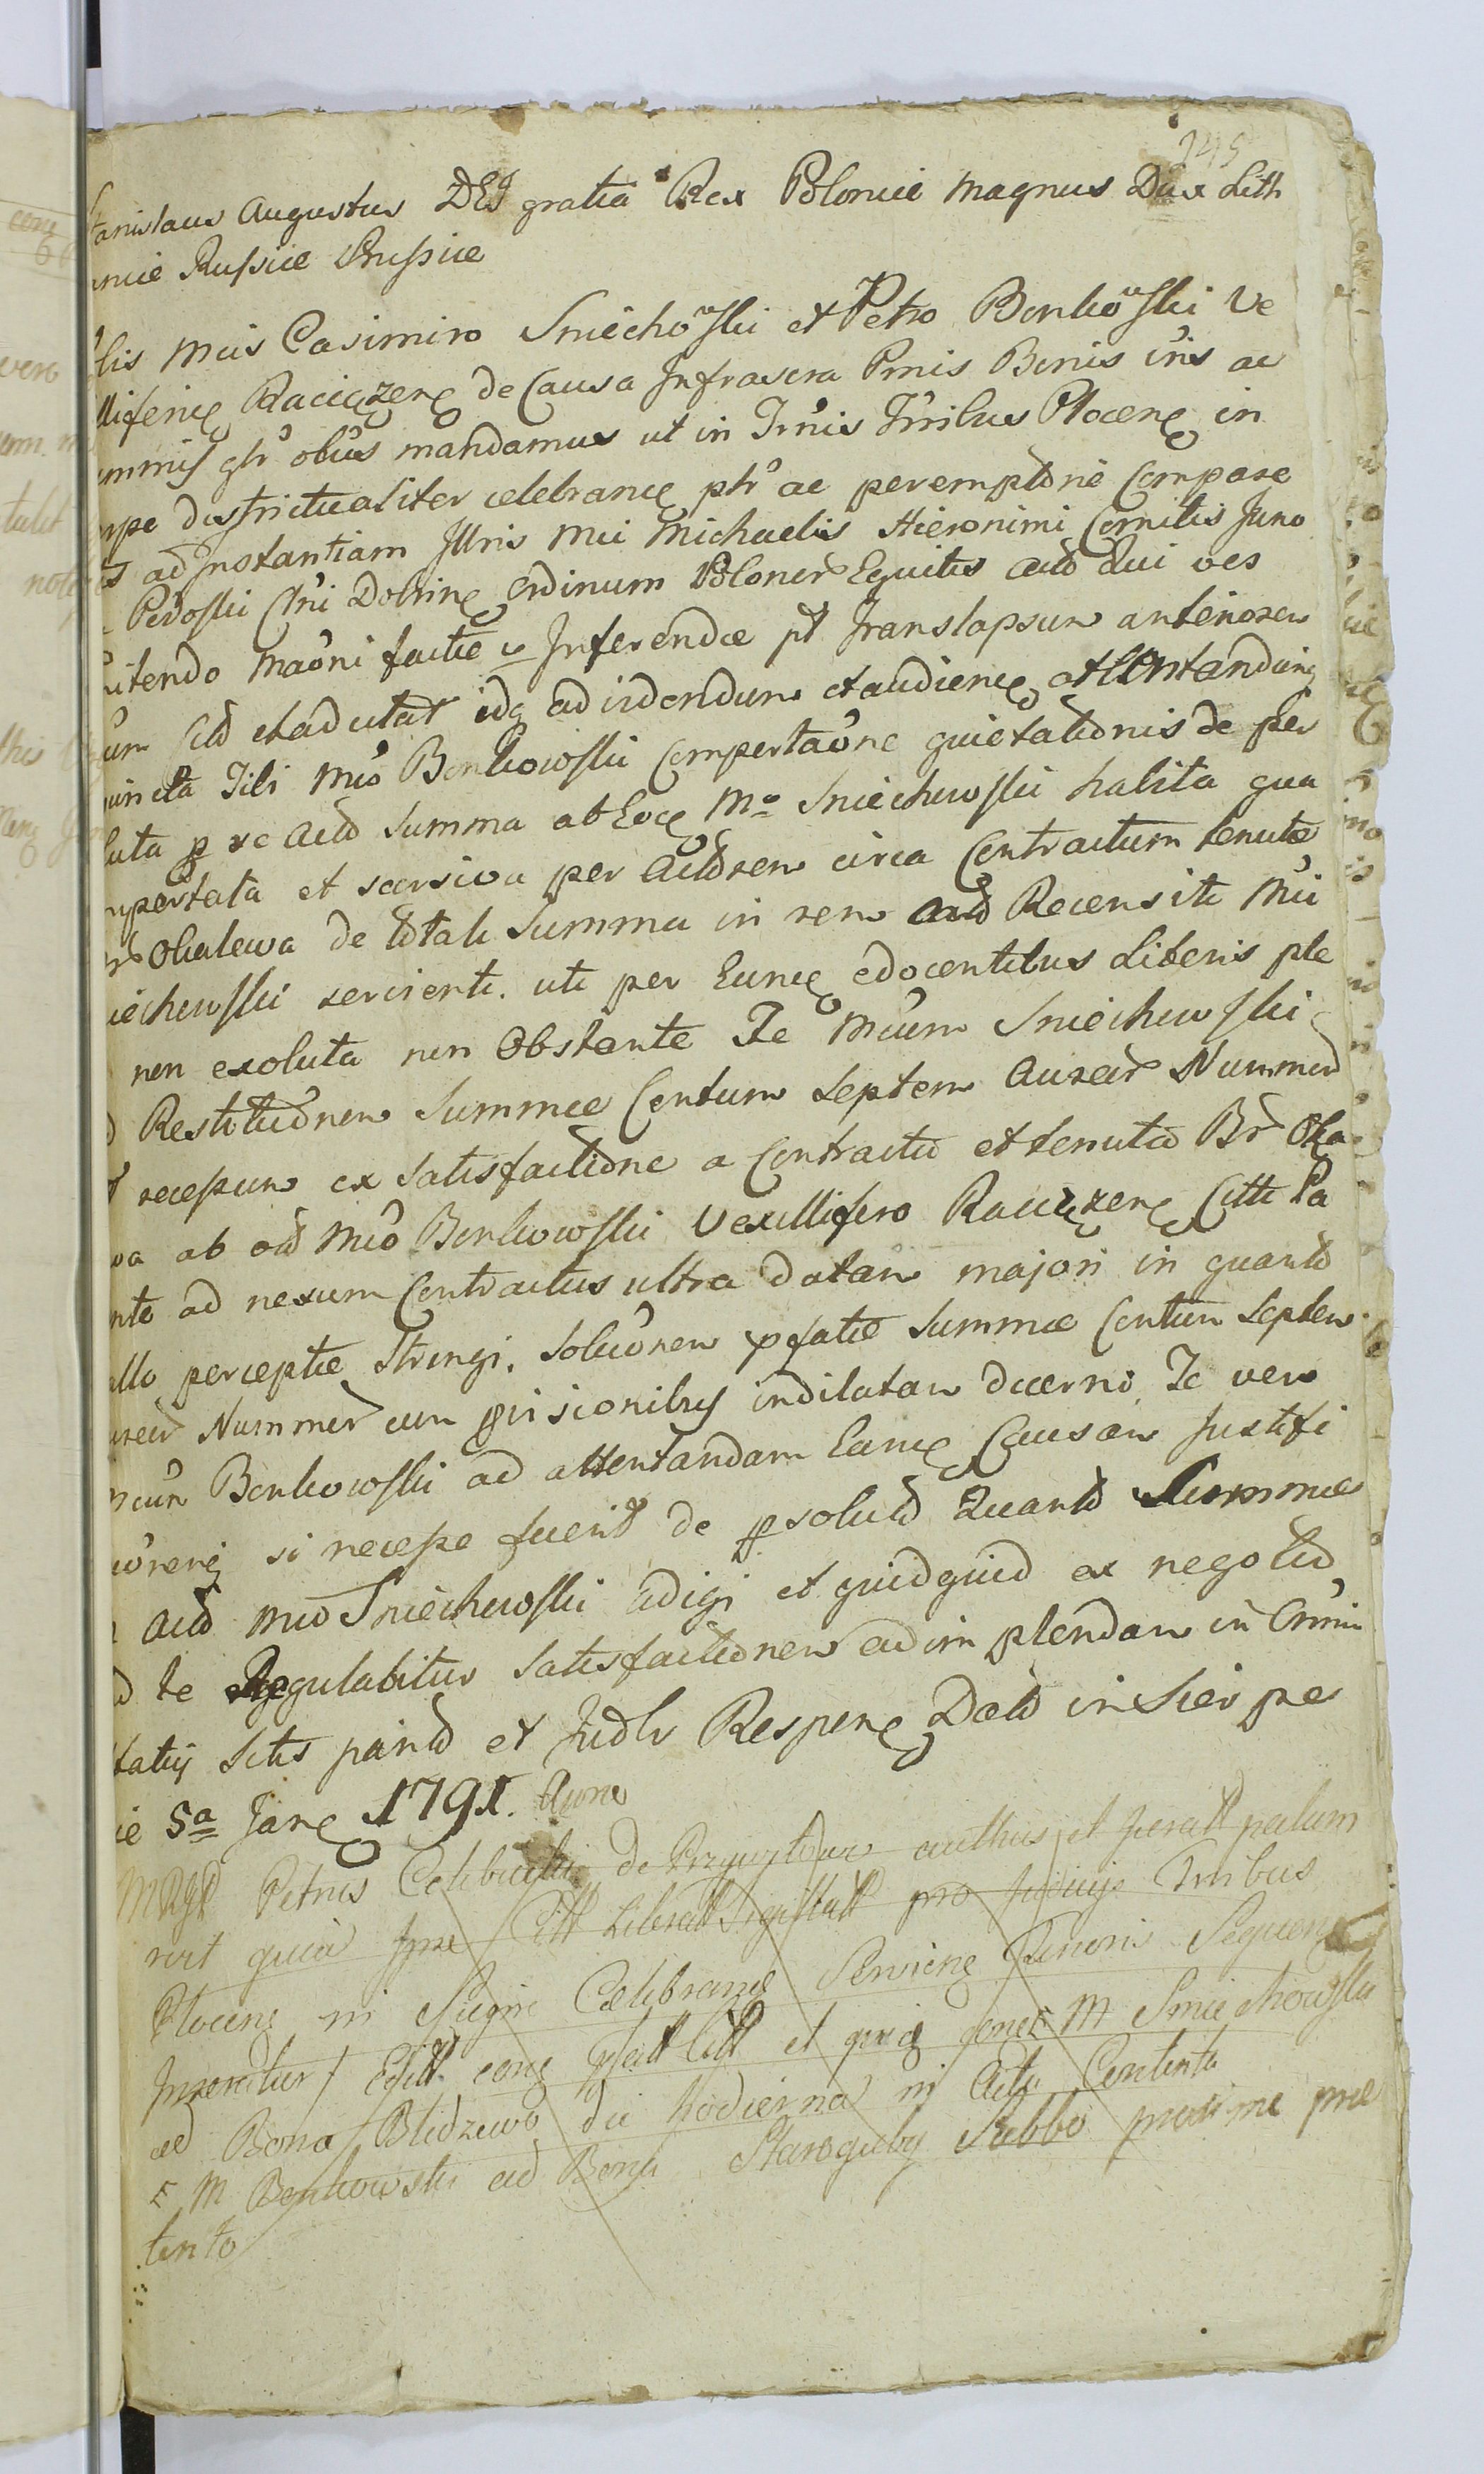 245
tanislaus Augustus DEI gratia Rex Poloniæ Magnus Dux Lith
aniæ Russiæ Prussiæ
Mcis Casimiro Sniechowski et Petro Bonkowski Ve
llifericę Raciązenę de Causa Infrascra Pmis Bonis iris ac
ommis glr obus mandamus ut in Trnis Trribus Plocenę in
erpc districtualiter celebranę ptr ac peremptorie Compare
ad Instantiam Illris Mci Michaelis Hieronimi Comitis Juno
Pedoski Clni Dobrinę Ordinum Polonor Equitis Acto Qui vos
itendo Maoni factæ Inferendæ pt Translapsum anteriorem
um Cito et adcitat idq ad videndum et audienę attentandang
uncta Tibi Mco Bonkowski Comportaone quietationis de per
luta pre Acto Summa ab Eoę Mo Sniechowski habita qua
mportata et scorsiva per Actorem circa Contractum tenutæ
Okalewa de totali Summa in rem Acto Recensiti Mci
iechowski servienti. uti per Eunę edocentibus Literis ple
non exoluta non Obstante Te Mcum Sniechowski
Restitutionem Summæ Centum Septem Aureor Nummor
recepum ex Satisfactione a Contractu et tenuta Br Oka
wa ab eod Mco Bonkowski Vexillifero Raciązenę Citti Pa
nte ad nexum Contractus ultra datam majori in quanto
illo perceptæ Stringi. Soluonem pfatæ Summæ Centum Septem
ureor Nummor cum pvisionibus indilatam decerni Te vero
Mcum Bonkowski ad attentandam Eanę Causam Justifi
cuonenę si necesse fuerit de psoluto Quanto Summæ
Acto Mco Sniechowski adigi et quidquid ex negotio
te Regulabitur Satisfactionem adimplendam in Omni
tatij Sitis parito et Judlr Responę Dato in Sierpc
ie 5a Janę 1791. Anno
MRGD Petrus Celibucki de authus et jurat palam
vit quia Ipse Citt Literatt Sigillatt pro Judicijs Trribus
Plocenę in Sierpc Celebranę Servienę Tenoris Sequenę
Inseratur / Editt eonę pfatt litt et quiq penes M Sniechowski
ad Bona Blidzewo die hodierna in Actu Contenta
E M Bonkowski ad Bona Staroguby Sabbo proxime præ
terito